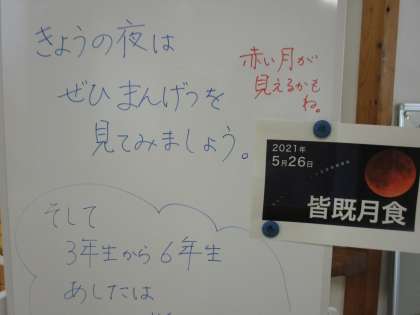 きょうの夜は
ぜひ まんげつを
見てみましょう。
赤い月が
見えるかも
ね。
2021年
5月26日
皆既月食
そして
3年生から6年生
あしたは